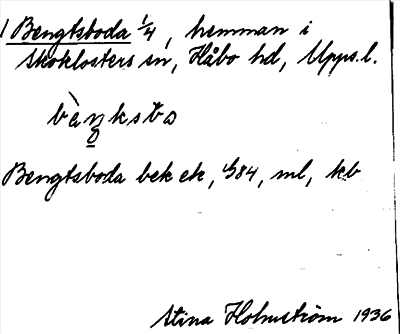 1 Bengtsboda 1/4, hemman i
Skoklosters sn, Håbo hd, Upps.l.
Bengtsboda bek ek, 1/384, ml, kb
Stina Holmström 1936